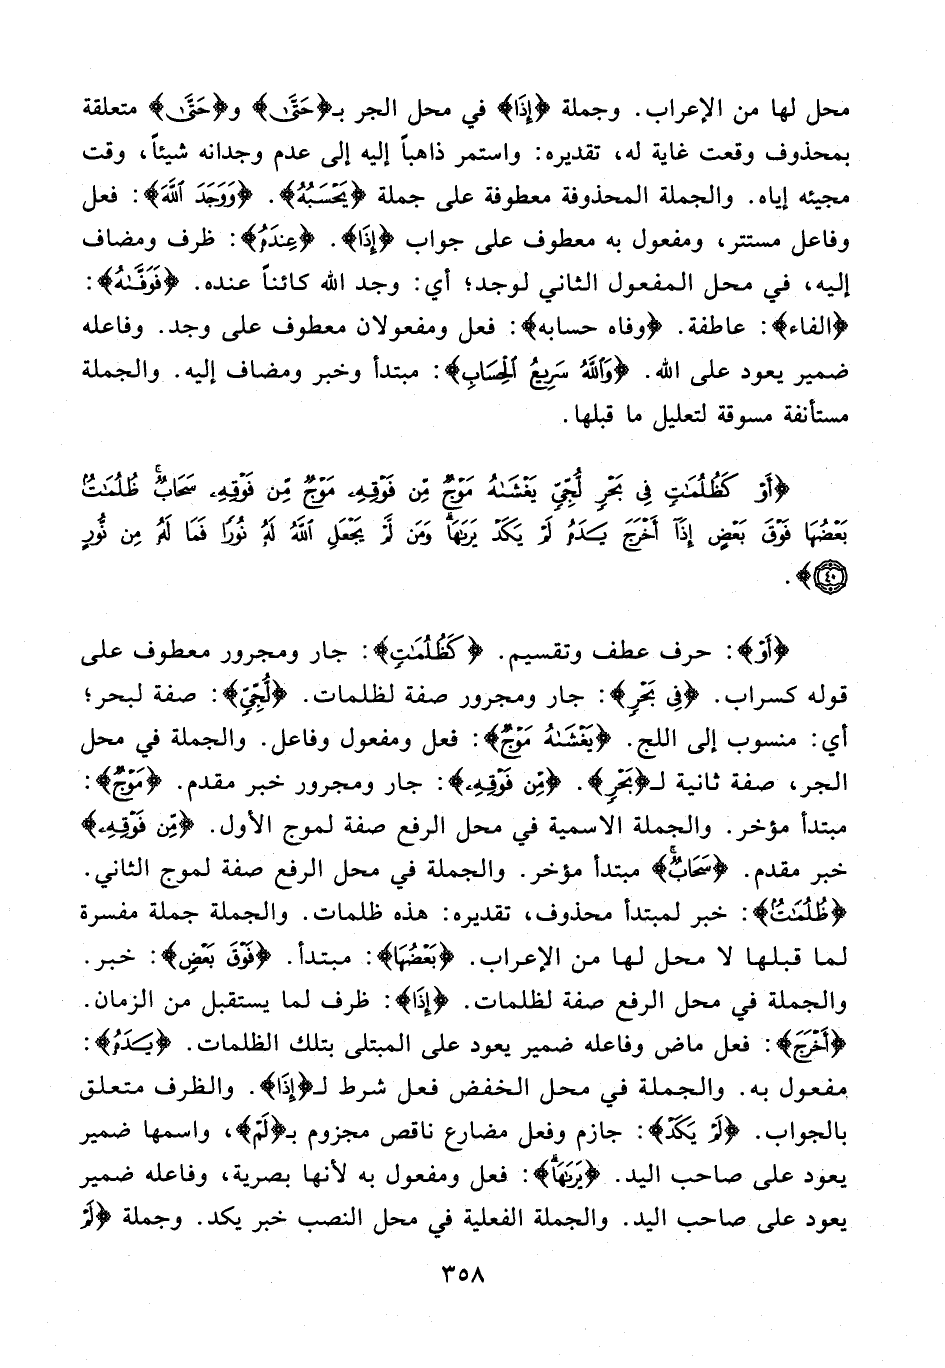 محل لها من الإعراب. وجملة ﴿إِذَا﴾ في محل الجر بـ﴿حَتَّى﴾ و﴿حَتَّى﴾ متعلقة
بمحذوف وقعت غاية له، تقديره: واستمر ذاهباً إليه إلى عدم وجدانه شيئاً، وقت
مجيئه إياه. والجملة المحذوفة معطوفة على جملة ﴿يَحْسَبُهُ﴾. ﴿وَوَجَدَ ٱللَّهَ﴾: فعل
وفاعل مستتر، ومفعول به معطوف على جواب ﴿إِذَا﴾. ﴿عِندَهُ﴾: ظرف ومضاف
إليه، في محل المفعول الثاني لوجد؛ أي: وجد الله كائناً عنده. ﴿فَوَفَّىٰهُ﴾:
﴿الفاء﴾: عاطفة. ﴿وفاه حسابه﴾: فعل ومفعولان معطوف على وجد. وفاعله
ضمير يعود على الله. ﴿وَٱللَّهُ سَرِيعُ ٱلْحِسَابِ﴾: مبتدأ وخبر ومضاف إليه. والجملة
مستأنفة مسوقة لتعليل ما قبلها.
﴿أَوْ كَظُلُمَٰتٍ فِى بَحْرٍ لُّجِّىٍّ يَغْشَىٰهُ مَوْجٌ مِّن فَوْقِهِۦ مَوْجٌ مِّن فَوْقِهِۦ سَحَابٌ ۚ ظُلُمَٰتٌۢ
بَعْضُهَا فَوْقَ بَعْضٍ إِذَآ أَخْرَجَ يَدَهُۥ لَمْ يَكَدْ يَرَىٰهَا ۗ وَمَن لَّمْ يَجْعَلِ ٱللَّهُ لَهُۥ نُورًا فَمَا لَهُۥ مِن نُّورٍ
٤٠﴾.
﴿أَوْ﴾: حرف عطف وتقسيم. ﴿كَظُلُمَٰتٍ﴾: جار ومجرور معطوف على
قوله كسراب. ﴿فِى بَحْرٍ﴾: جار ومجرور صفة لظلمات. ﴿لُّجِّىٍّ﴾: صفة لبحر؛
أي: منسوب إلى اللج. ﴿يَغْشَىٰهُ مَوْجٌ﴾: فعل ومفعول وفاعل. والجملة في محل
الجر، صفة ثانية لـ﴿بَحْرٍ﴾. ﴿مِّن فَوْقِهِۦ﴾: جار ومجرور خبر مقدم. ﴿مَوْجٌ﴾:
مبتدأ مؤخر. والجملة الاسمية في محل الرفع صفة لموج الأول. ﴿مِّن فَوْقِهِۦ﴾
خبر مقدم. ﴿سَحَابٌ ۚ﴾ مبتدأ مؤخر. والجملة في محل الرفع صفة لموج الثاني.
﴿ظُلُمَٰتٌۢ﴾: خبر لمبتدأ محذوف، تقديره: هذه ظلمات. والجملة جملة مفسرة
لما قبلها لا محل لها من الإعراب. ﴿بَعْضُهَا﴾: مبتدأ. ﴿فَوْقَ بَعْضٍ﴾: خبر.
والجملة في محل الرفع صفة لظلمات. ﴿إِذَا﴾: ظرف لما يستقبل من الزمان.
﴿أَخْرَجَ﴾: فعل ماض وفاعله ضمير يعود على المبتلى بتلك الظلمات. ﴿يَدَهُ﴾:
مفعول به. والجملة في محل الخفض فعل شرط لـ﴿إِذَا﴾. والظرف متعلق
بالجواب. ﴿لَمْ يَكَدْ﴾: جازم وفعل مضارع ناقص مجزوم بـ﴿لَمْ﴾، واسمها ضمير
يعود على صاحب اليد. ﴿يَرَىٰهَا ۗ﴾: فعل ومفعول به لأنها بصرية، وفاعله ضمير
يعود على صاحب اليد. والجملة الفعلية في محل النصب خبر يكد. وجملة ﴿لَمْ
٣٥٨